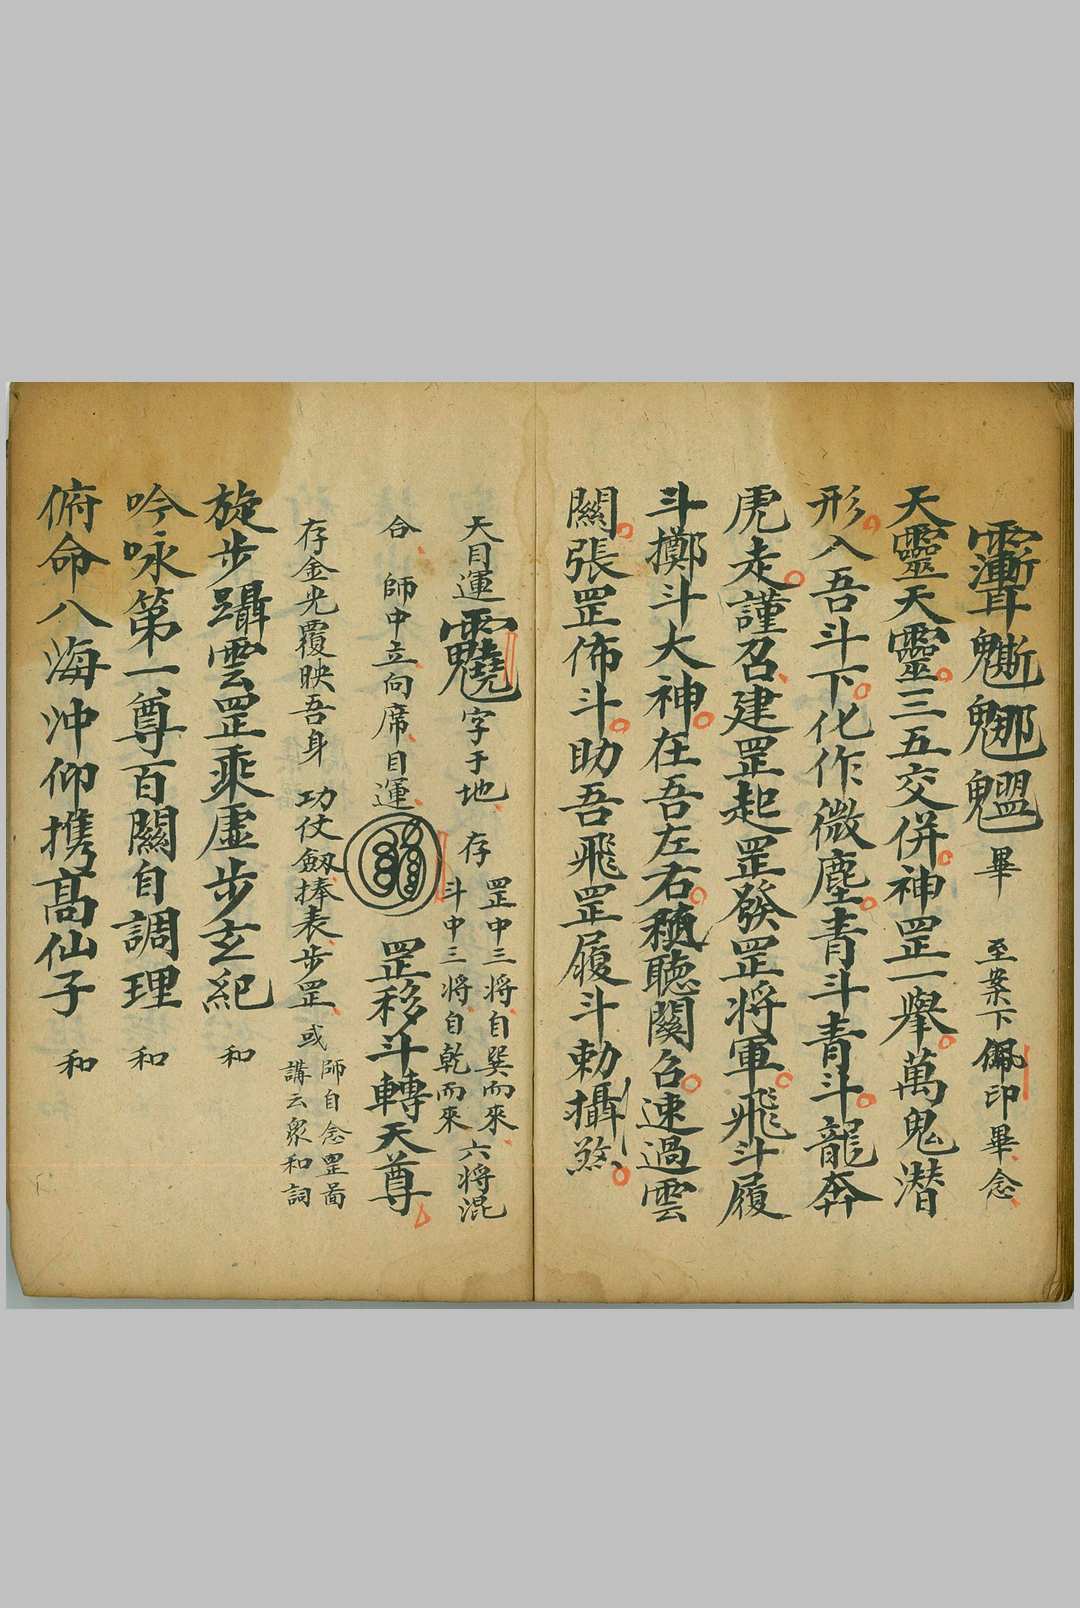 畢 至案下佩印畢念
天靈天靈三五交併神罡一舉萬鬼潜
形入吾斗下化作微塵青斗青斗龍奔
虎走謹召建罡起罡發罡將軍飛斗履
斗擲斗大神在吾左右聽關召速過雲
關張罡佈斗助吾飛罡履斗勅攝煞
天目運 字于地 存 罡中三將自巽而來 斗中三將自乾而來 六將混
合 師中立向席目運 罡移斗轉天尊
存金光覆映吾身 功仗劍捧表步罡 或 師自念罡啚 講云眾和詞
旋步躡雲罡乘虛步玄紀 和
吟咏第一尊百關自調理 和
俯命八海沖仰携髙仙子 和